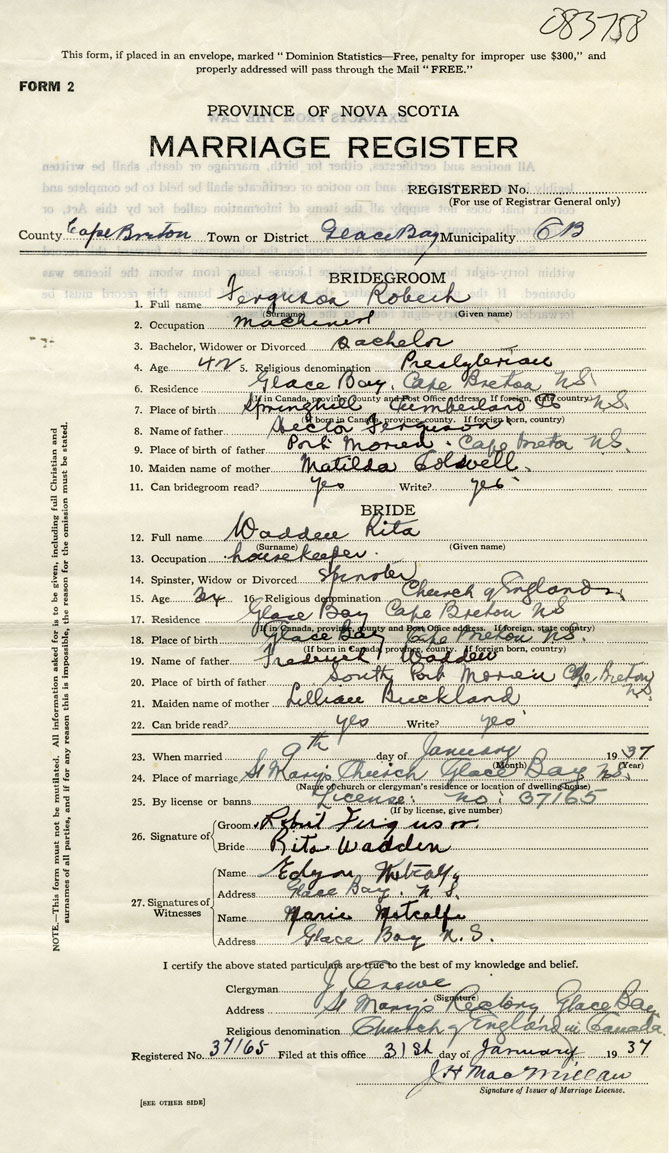 083758
This form, if placed in an envelope, marked "Dominion Statistics—Free, penalty for improper use $300," and
properly addressed will pass through the Mail "FREE."
FORM 2
PROVINCE OF NOVA SCOTIA
MARRIAGE REGISTER
REGISTERED No.
(For use of Registrar General only)
County Cape Breton Town or District Glace Bay Municipality CB
BRIDEGROOM
1. Full name Ferguson Robert
(Surname) (Given name)
2. Occupation machinist
3. Bachelor, Widower or Divorced Bachelor
4. Age 42 5. Religious denomination Presbyterian
6. Residence Glace Bay, Cape Breton NS
(If in Canada, province, county and Post Office address. If foreign, state country)
7. Place of birth Springhill Cumberland Co NS
(If born in Canada, province, county. If foreign born, country)
8. Name of father Hector Ferguson
9. Place of birth of father Port Morien Cape Breton NS
10. Maiden name of mother Matilda Colwell
11. Can bridegroom read? yes Write? yes
BRIDE
12. Full name Wadden Rita
(Surname) (Given name)
13. Occupation housekeeper
14. Spinster, Widow or Divorced Spinster
15. Age 16. Religious denomination Church of England
17. Residence Glace Bay Cape Breton NS
(If in Canada, province, county and Post Office address. If foreign, state country)
18. Place of birth Glace Bay Cape Breton NS
(If born in Canada, province, county. If foreign born, country)
19. Name of father Frederick Wadden
20. Place of birth of father South Port Morien Cape Breton NS
21. Maiden name of mother Lillian Buckland
22. Can bride read? yes Write? yes
23. When married 9th day of January 1937
(Month) (Year)
24. Place of marriage St Mary's Church Glace Bay NS
(Name of church or clergyman's residence or location of dwelling house)
25. By license or banns License: no: 37165
(If by license, give number)
26. Signature of Groom Robert Ferguson
Bride Rita Wadden
27. Signatures of Witnesses Name Metcalfe
Address Glace Bay. N.S.
Name Marie Metcalfe
Address Glace Bay N.S.
I certify the above stated particulars are true to the best of my knowledge and belief.
Clergyman J Crowe
(Signature)
Address St Mary's Rectory Glace Bay
Religious denomination Church of England in Canada
Registered No. 37165 Filed at this office 31st day of January 1937
J H MacMillan
Signature of Issuer of Marriage License.
[SEE OTHER SIDE]
NOTE.—This form must not be mutilated. All information asked for is to be given, including full Christian and
surnames of all parties, and if for any reason this is impossible, the reason for the omission must be stated.